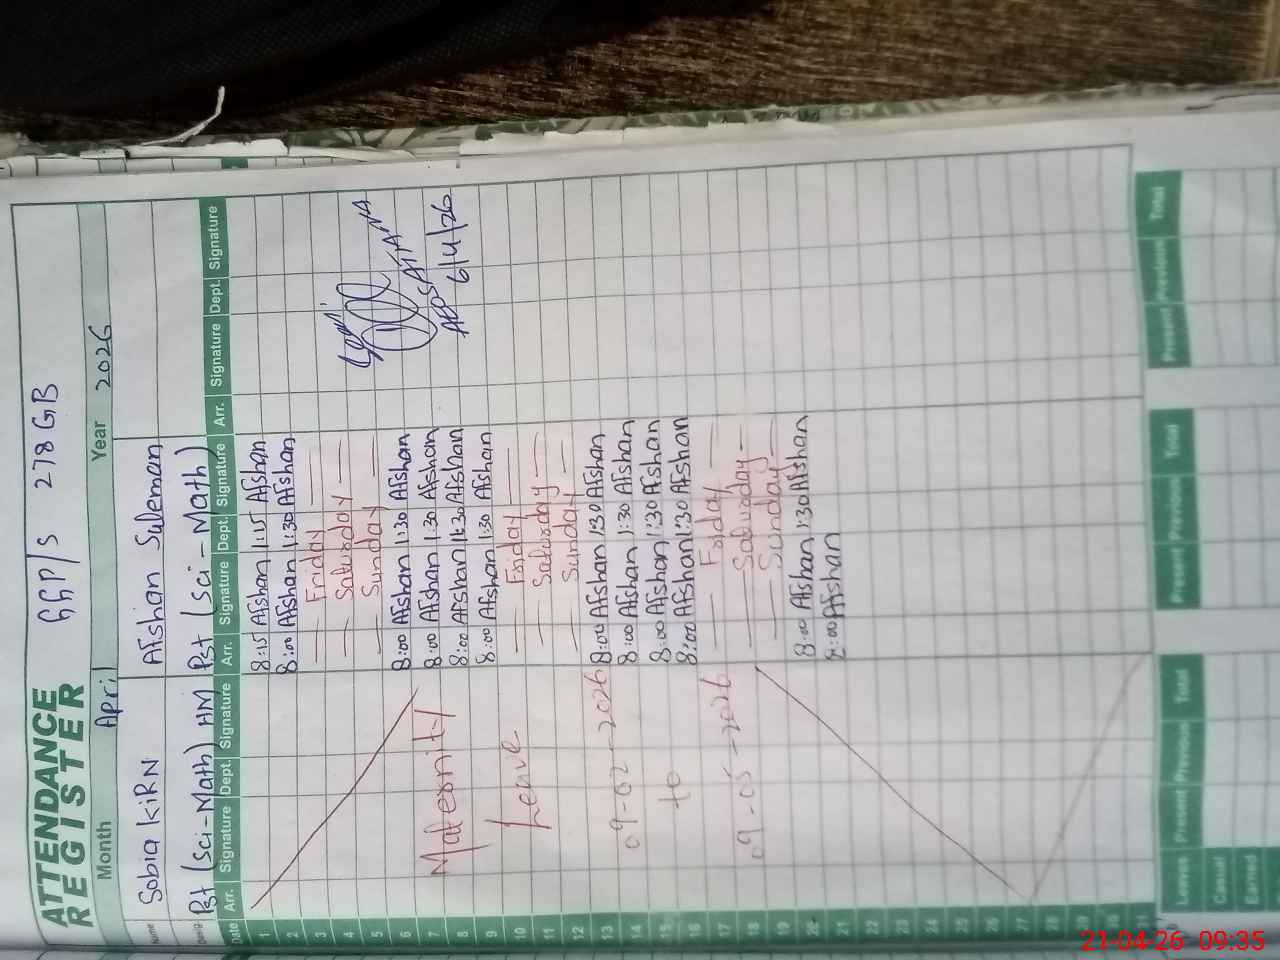 ATTENDANCE REGISTER
GGP/S 278 GB
Month April Year 2026
Name Sobia KiRN Afshan Suleman
Desig. Pst (Sci-Math) HM Pst (Sci-Math)
Date Arr. Signature Dept. Signature Arr. Signature Dept. Signature Arr. Signature Dept. Signature
1 8:15 Afshan 1:15 Afshan
2 8:00 Afshan 1:30 Afshan
3 Friday
4 Saturday
5 Sunday
6 8:00 Afshan 1:30 Afshan
7 8:00 Afshan 1:30 Afshan
8 8:00 Afshan 1:30 Afshan
9 8:00 Afshan 1:30 Afshan
10 Friday
11 Saturday
12 Sunday
13 8:00 Afshan 1:30 Afshan
14 8:00 Afshan 1:30 Afshan
15 8:00 Afshan 1:30 Afshan
16 8:00 Afshan 1:30 Afshan
17 Friday
18 Saturday
19 Sunday
20 8:00 Afshan 1:30 Afshan
21 8:00 Afshan
22
23
24
25
26
27
28
29
30
31
Maternity
Leave
09-02-2026
to
09-05-2026
6/4/26
Leave Present Previous Total Present Previous Total Present Previous Total
Casual
Earned
21-04-26 09:35